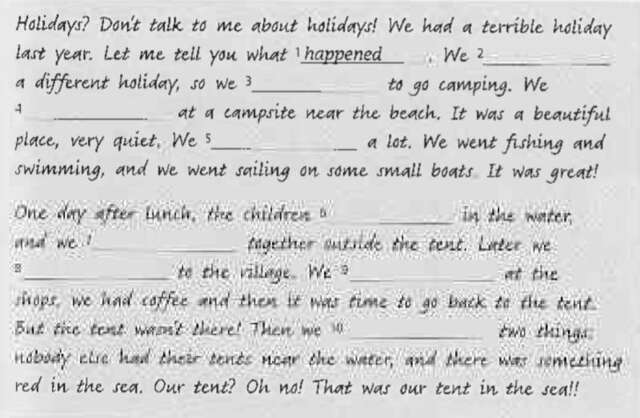 Holidays? Don't talk to me about holidays! We had a terrible holiday
last year. Let me tell you what ¹ happened . We ² ____________
a different holiday, so we ³ ____________ to go camping. We
⁴ ____________ at a campsite near the beach. It was a beautiful
place, very quiet. We ⁵ ____________ a lot. We went fishing and
swimming, and we went sailing on some small boats. It was great!
One day after lunch, the children ⁶ ____________ in the water,
and we ⁷ ____________ together outside the tent. Later we
⁸ ____________ to the village. We ⁹ ____________ at the
shops, we had coffee and then it was time to go back to the tent.
But the tent wasn't there! Then we ¹⁰ ____________ two things:
nobody else had their tents near the water, and there was something
red in the sea. Our tent? Oh no! That was our tent in the sea!!